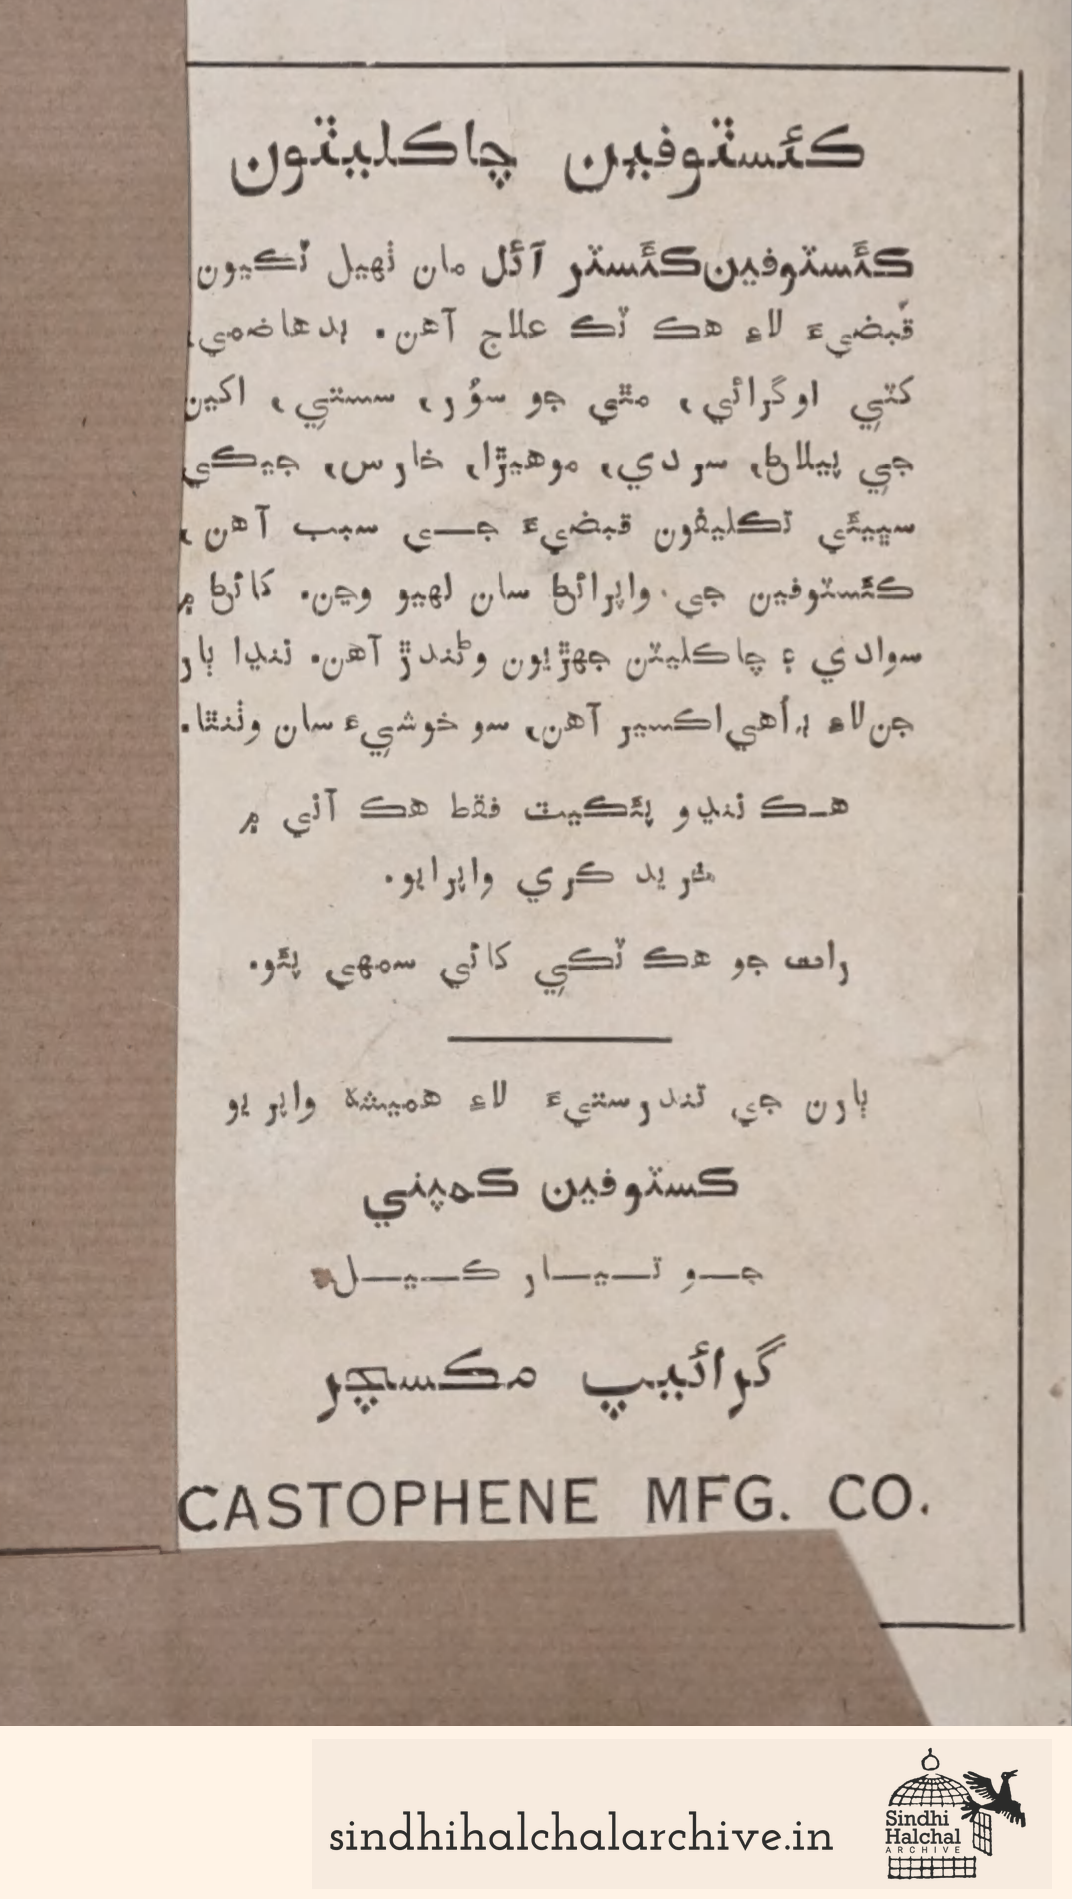 ڪئسٽوفين چاڪليٽون
ڪئسٽوفين ڪئسٽر آئل مان ٺهيل ٽڪيون
قبضيءَ لاءِ هڪ ٽڪ علاج آهن. بدهاضمي،
کٽي اوگرائي، مٿي جو سُور، سستي، اکين
جي پيلاڻ، سردي، موهيڙا، خارس، جيڪي
سڀيئي تڪليفون قبضيءَ جي سبب آهن،
ڪئسٽوفين جي واپرائڻ سان لهيو وڃن. کائڻ ۾
سوادي ۽ چاڪليٽن جهڙيون وڻندڙ آهن. ننڍا ٻار
جن لاءِ بہ اُهي اڪسير آهن، سو خوشيءَ سان وٺنٿا.
هڪ ننڍو پئڪيٽ فقط هڪ آني ۾
خريد ڪري واپرايو.
رات جو هڪ ٽڪي کائي سمهي پئو.
ٻارن جي تندرستيءَ لاءِ هميشہ واپريو
ڪسٽوفين ڪمپني
جو تيار ڪيل
گرائيپ مڪسچر
CASTOPHENE MFG. CO.
sindhihalchalarchive.in
Sindhi
Halchal
ARCHIVE